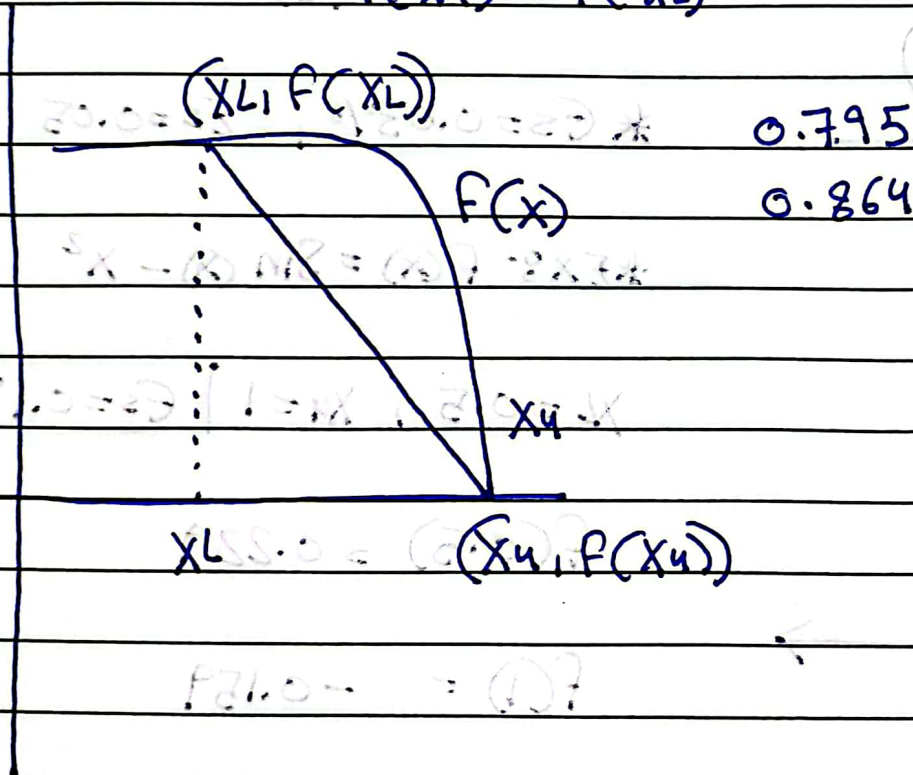 (XL, F(XL))
0.795
F(X)
0.864
Xu
XL
(Xu, F(Xu))